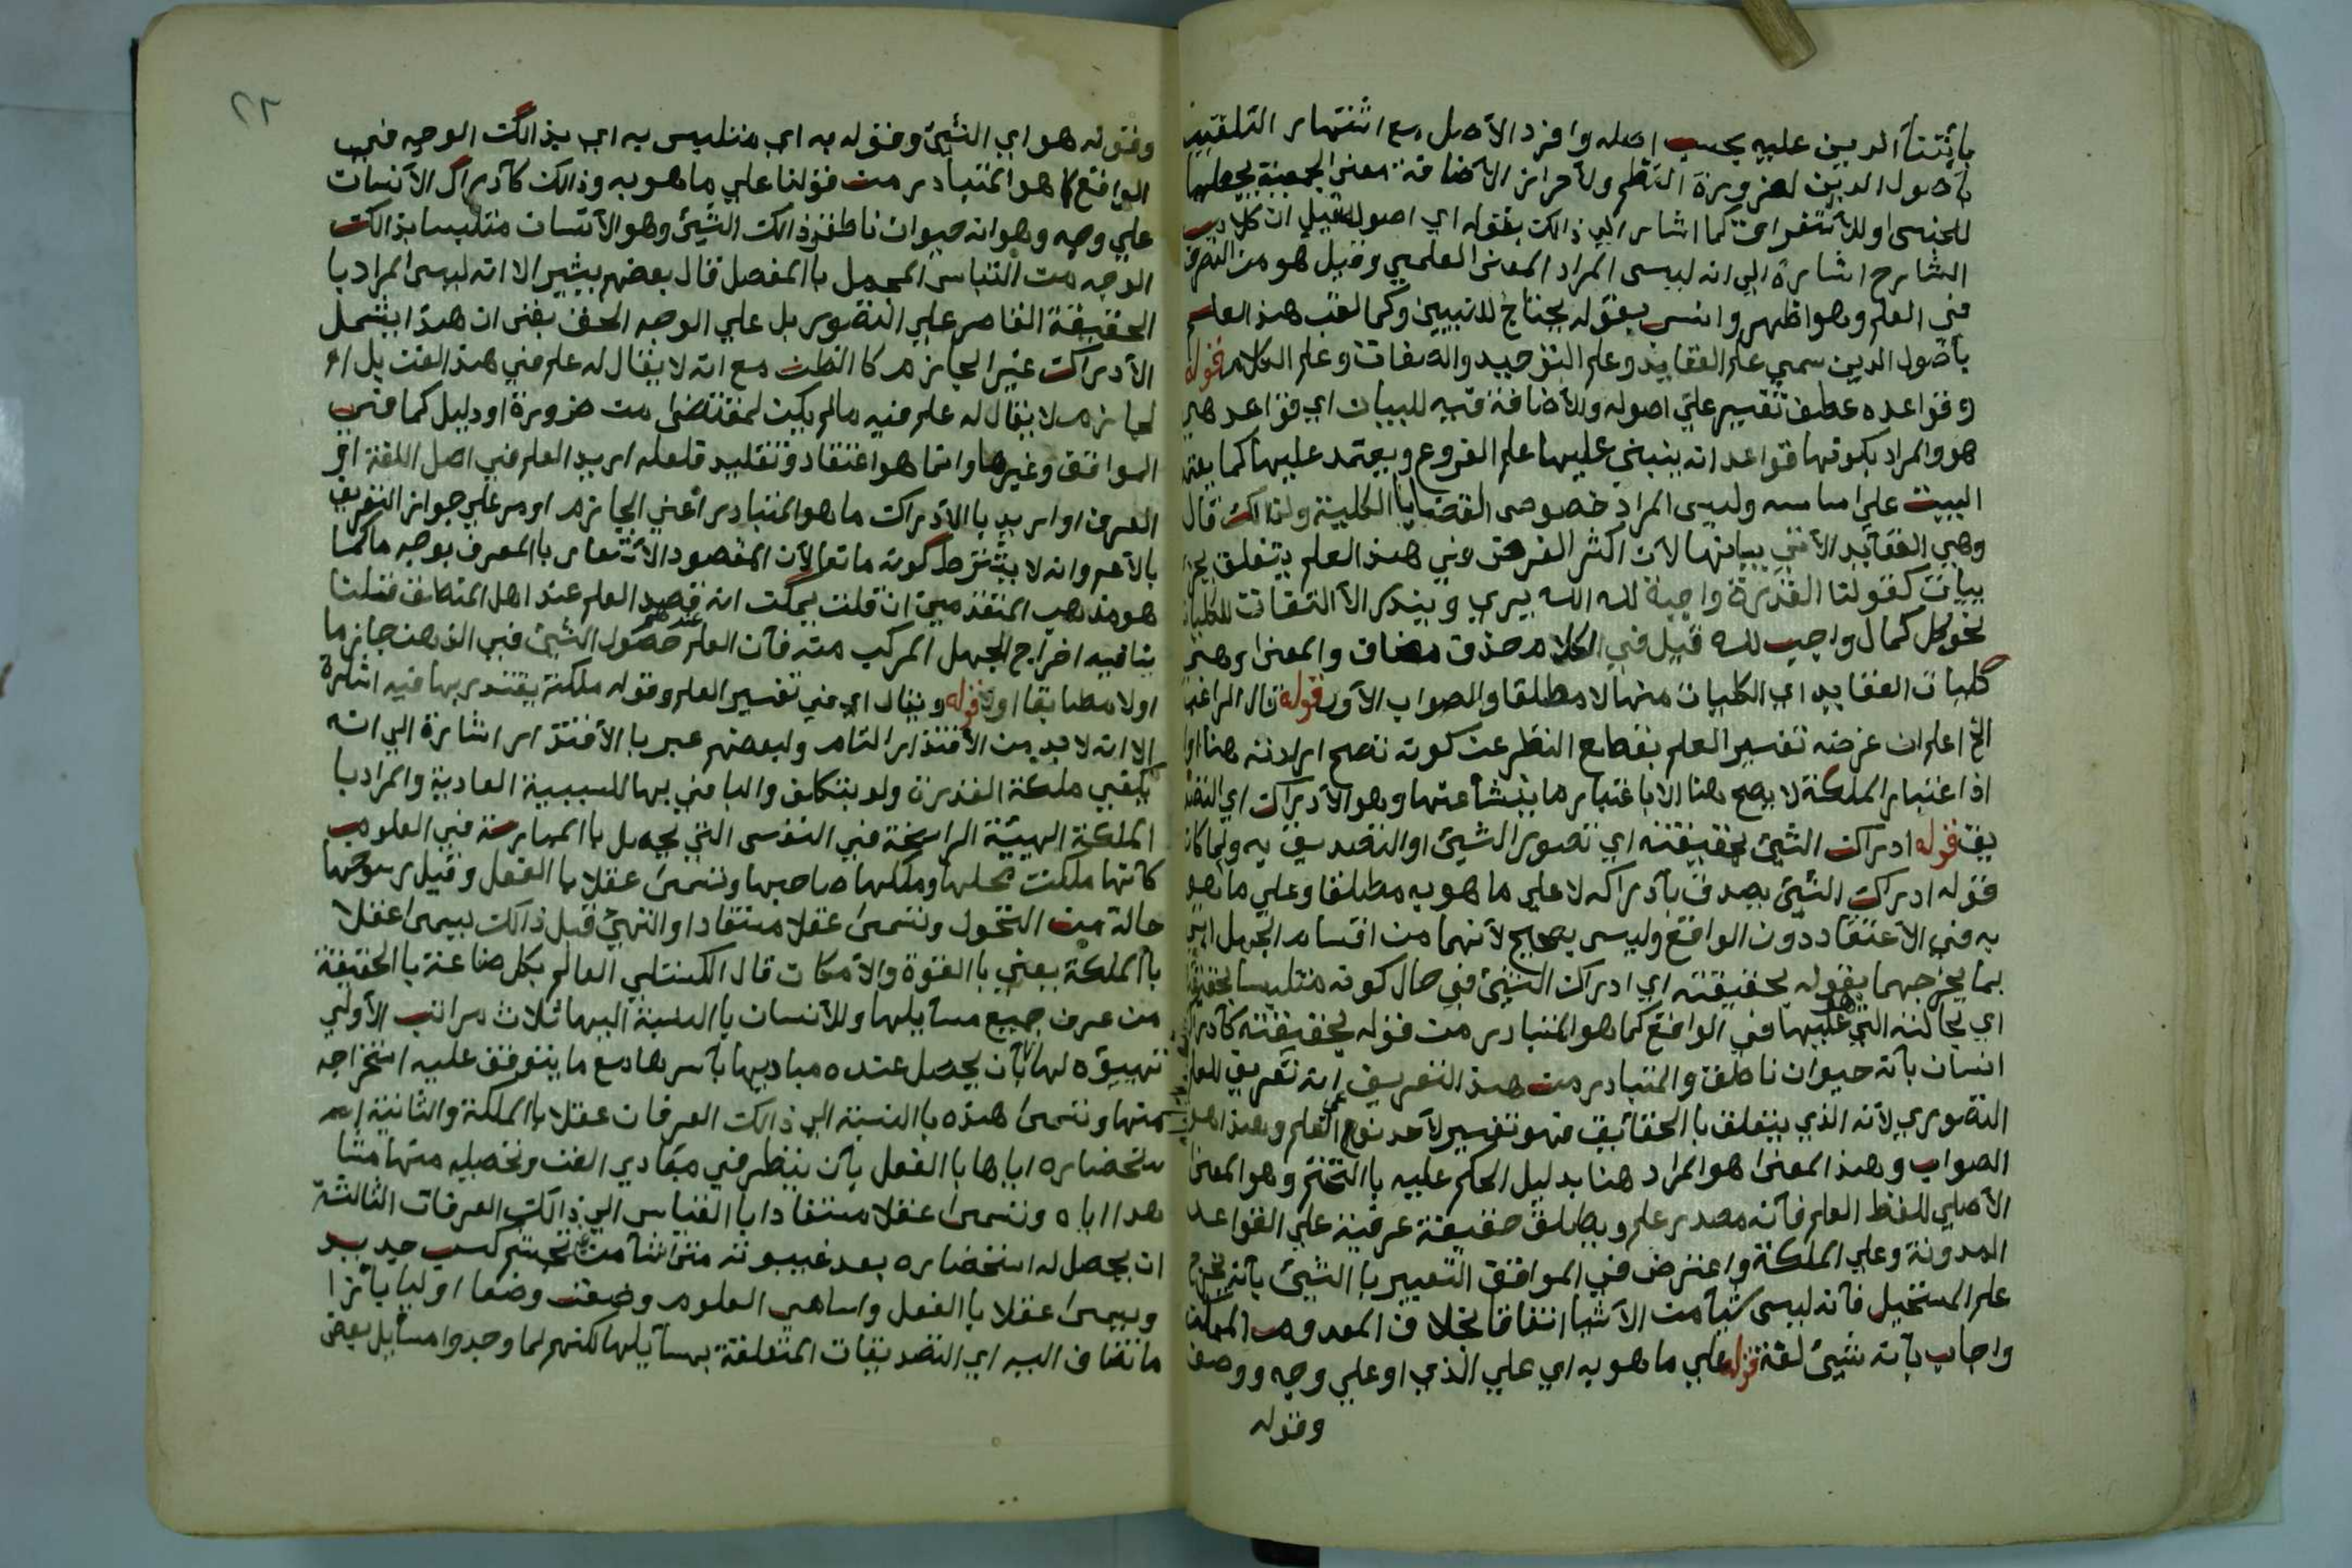 بأبتنآ الدين عليه بحسب اصله وافرد الأصل مع اشتهار التلقيب
بأصول الدين لضرورة النظم ولأحراز الأضافة معنى الجمعية بجعلها
للجنس او للأستغراق كما اشار الي ذالك بقوله اي اصول قيل ان كلام
الشارح اشارة الي انه ليس المراد المعنى العلمي وقيل هو من التصرف
في العلم وهو اظهر وانسب بقوله يحتاج للتبيين وكما لقب هذا العلم
بأصول الدين سمي علم العقايد وعلم التوحيد والصفات وعلم الكلام قوله
وقواعده عطف تفسير علي اصوله وللأضافة فيه للبيان اي قواعد هي
هو والمراد بكونها قواعد انه ينبني عليها علم الفروع ويعتمد عليها كما يعتمد
البيت علي اساسه وليس المراد خصوص القضايا الكلية ولذالك قال
وهي العقايد الأتي بيانها لان اكثر الغرض في هذا العلم يتعلق بجز
ييات كقولنا القدرة واجبة لله الله يري ويندر الألتفات للكليات
نحو كل كمال واجب لله قيل في الكلام حذف مضاف والمعنى وهي
كليات العقايد اي الكليات منها لا مطلقا والصواب الأول قوله قال الراغب
الخ اعلم ان غرضه تفسير العلم بقطع النظر عن كونه تصح ارادته هنا اولا
اذ اعتبار الملكة لا يصح هنا الا باعتبار ما ينشأ عنها وهو الأدراك اي التصد
يق قوله ادراك الشيئ بحقيقته اي تصور الشيئ او التصديق به ولما كان
قوله ادراك الشيئ يصدق بأدراكه لا علي ما هو به مطلقا وعلي ما هو
به في الأعتقاد دون الواقع وليس بصحيح لأنهما من اقسام الجهل اتي
بما يخرجهما بقوله بحقيقته اي ادراك الشيئ في حال كونه متلبسا بحقيقته
اي بحالته التي هو عليها في الواقع كما هو المتبادر من قوله بحقيقته كأدراك
انسان بأنه حيوان ناطق والمتبادر من هذا التعريف انه تعريف للعلم
التصوري لأنه الذي يتعلق با الحقائيق فهو تفسير لأحد نوعي العلم وهذا هو
الصواب وهذا المعنى هو المراد هنا بدليل الحكم عليه با التحتم وهو المعنى
الأصلي للفظ العلم فأنه مصدر علم ويطلق حقيقة عرفية علي القواعد
المدونة وعلي الملكة واعترض في المواقف التعبير با الشيئ بأنه يخرج
علم المستحيل فأنه ليس شيأ من الأشيا اتفاقا بخلاف المعدوم الممكن
واجاب بأنه شيئ لغة قوله علي ما هو به اي علي الذي او علي وجه ووصف
وقوله
٢٢
وقوله هو اي الشيئ وقوله به اي متلبس به اي بذالك الوجه في
الواقع كما هو المتبادر من قولنا علي ما هو به وذالك كأدراك الأنسان
علي وجه وهو انه حيوان ناطق فذالك الشيئ وهو الأنسان متلبسا بذالك
الوجه من التباس المجمل با المفصل قال بعضهم يشير الا انه ليس المراد با
الحقيقة القاصر علي التصوير بل علي الوجه الحق بقى ان هذا يشمل
الأدراك غير الجازم كا الظن مع انه لا يقال له علم في هذا الفن بل او
لجازم لا يقال له علم فيه مالم يكن لمقتضى من ضرورة او دليل كما في
المواقف وغيرها وانما هو اعتقاد وتقليد فلعله اريد العلم في اصل اللغة او
العرف او اريد با الأدراك ما هو المتبادر اعني الجازم او مر علي جواز التعريف
بالأعم وانه لا يشترط كونه مانعا لأن المقصود الأشعار با المعرف بوجه ما كما
هو مذهب المتقدمين ان قلت يمكن انه قصد العلم عند اهل المنطق قلنا
ينافيه اخراج الجهل المركب منه فأن العلم عندهم حصول الشيئ في الذهن جازما
اولا مطابقا اولا قوله ويقال اي في تفسير العلم وقوله ملكة يقتدر بها فيه اشارة
الا انه لا بد من الأقتدار التام ولبعضهم عبر با الأقتدار اشارة الي انه
يكفي ملكة القدرة ولو بتكلف والبا في بها للسببية العادية والمراد با
الملكة الهيئة الراسخة في النفس التي يحصل با الممارسة في العلوم
كأنها ملكت محلها وملكها صاحبها وتسمى عقلا با الفعل وقيل رسوخها
حالة من التحول وتسمى عقلا مستفادا والتهيئ قبل ذالك يسمى عقلا
با الملكة يعني با القوة والأمكان قال الكستلي العالم بكل صناعة با الحقيقة
من عرف جميع مسآيلها وللأنسان با النسبة اليها ثلاث مراتب الأولي
تهيؤه لها بأن يحصل عنده مباديها بأسرها مع ما يتوقف عليه استخراجه
منها وتسمى هذه با النسبة الي ذالك العرفان عقلا با الملكة والثانية ا
ستحضاره اياها با الفعل بأن ينظر في مبادي الفن وتحصيله منها متنا
هدا اياه وتسمى عقلا مستفادا با القياس الي ذالك العرفان الثالثة
ان يحصل له استحضاره بعد غيبوبته متى شآ من غير تجشم كسب جديد
ويسمى عقلا با الفعل واسامي العلوم وضعت وضعا اوليا بأزا
ما تضاف اليه اي التصديقات المتعلقة بمسآيلها لكنهم لما وجدوا مسآيل بعض